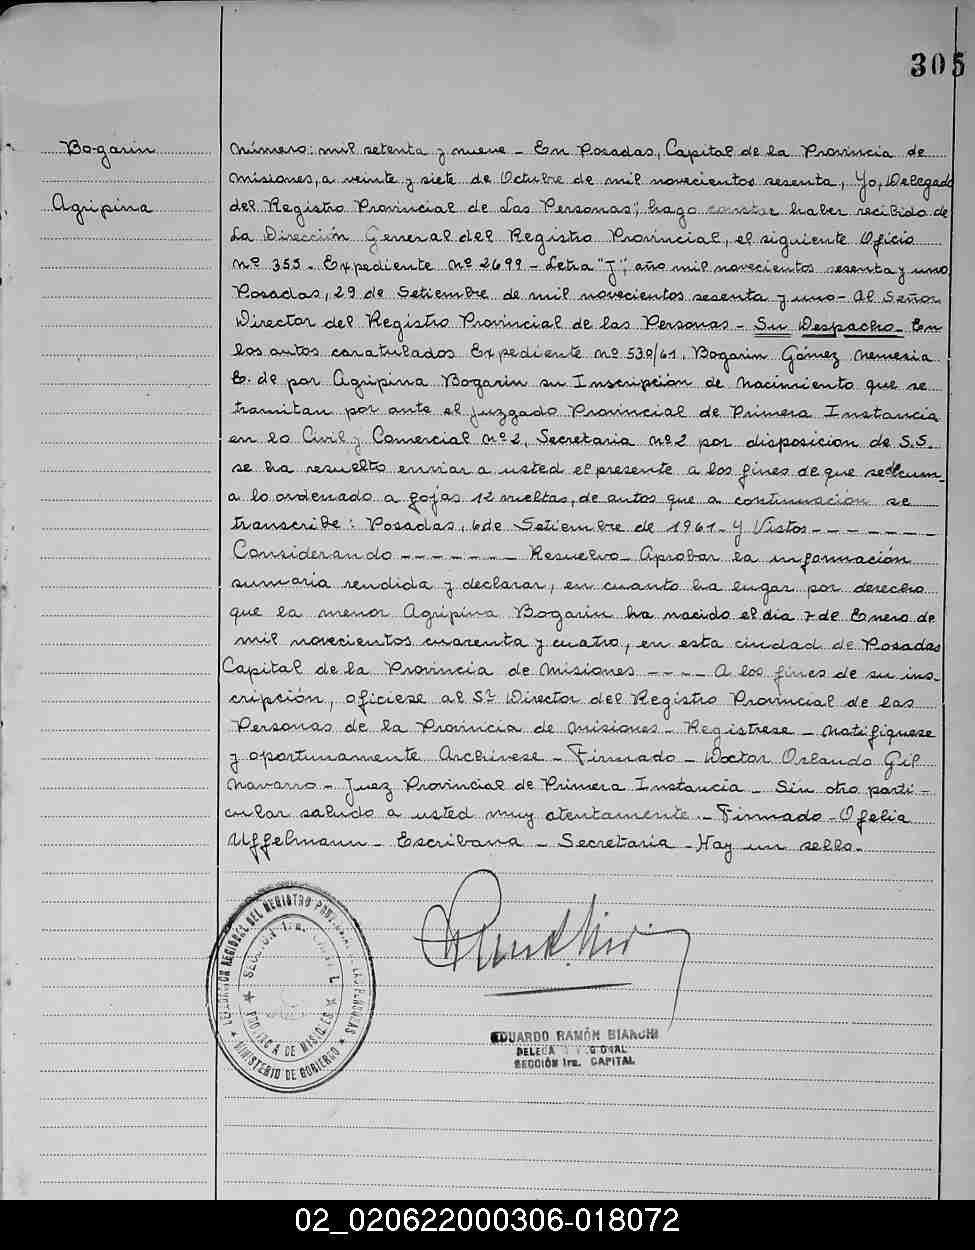 305
Bogarin
Agripina
Número: mil setenta y nueve – En Posadas, Capital de la Provincia de
Misiones, a veinte y siete de Octubre de mil novecientos sesenta, Yo, Delegado
del Registro Provincial de Las Personas; hago constar haber recibido de
La Dirección General del Registro Provincial, el siguiente Oficio
nº 355. Expediente nº 2699 – Letra "J", año mil novecientos sesenta y uno
Posadas, 29 de Setiembre de mil novecientos sesenta y uno – Al Señor
Director del Registro Provincial de las Personas – Su Despacho – En
los autos caratulados Expediente nº 530/61, Bogarin Gómez Nemesia
E. de por Agripina Bogarin su Inscripción de Nacimiento que se
tramitan por ante el Juzgado Provincial de Primera Instancia
en lo Civil y Comercial nº 2, Secretaria nº 2 por disposicion de S.S.
se ha resuelto enviar a usted el presente a los fines de que se cum
a lo ordenado a fojas 12 vueltas, de autos que a continuación se
transcribe: Posadas, 6 de Setiembre de 1961 – Y Vistos – – – – –
Considerando – – – – – – – Resuelvo – Aprobar la información
sumaria rendida y declarar, en cuanto ha lugar por derecho
que la menor Agripina Bogarin ha nacido el día 7 de Enero de
mil novecientos cuarenta y cuatro, en esta ciudad de Posadas
Capital de la Provincia de Misiones – – – – A los fines de su ins-
cripción, ofíciese al Sr Director del Registro Provincial de las
Personas de la Provincia de Misiones – Registrese – Notifiquese
y oportunamente Archivese – Firmado – Doctor Orlando Gil
Navarro – Juez Provincial de Primera Instancia – Sin otro parti-
cular saludo a usted muy atentamente. – Firmado – Ofelia
Uffelmann – Escribana – Secretaria – Hay un sello.
DELEGACION REGIONAL DEL REGISTRO PROVINCIAL DE LAS PERSONAS
SECCION 1ra. CAPITAL
PROVINCIA DE MISIONES
MINISTERIO DE GOBIERNO
EDUARDO RAMÓN BIANCHI
DELEGADO REGIONAL
SECCIÓN 1ra. CAPITAL
02_020622000306-018072